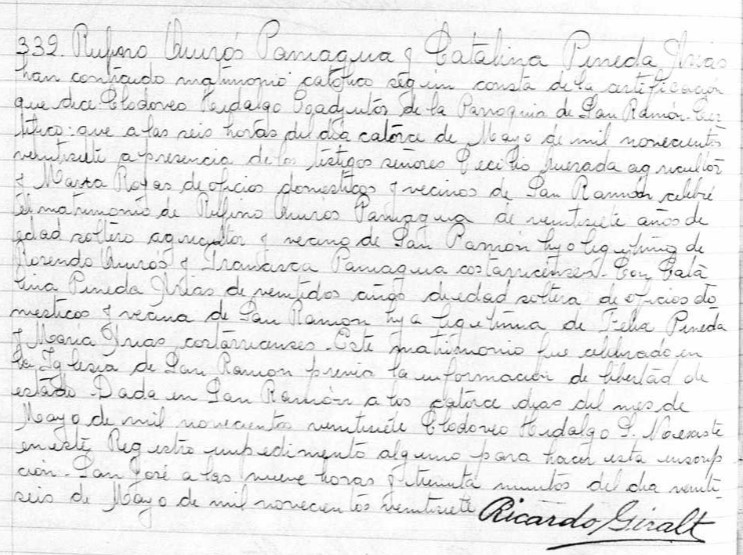 339. Rufino Quirós Paniagua y Catalina Pineda Arias
han contraido matrimonio católico según consta de la certificación
que dice Clodoveo Hidalgo Coadjutor de la Parroquia de San Ramón. Cer
tifico: que a las seis horas del día catorce de Mayo de mil novecientos
veintisiete a presencia de los testigos señores Cecilio Quesada agricultor
y María Rojas de oficios domésticos y vecinos de San Ramón, celebré
el matrimonio de Rufino Quiros Paniagua de veintisiete años de
edad soltero agricultor y vecino de San Ramón hijo legítimo de
Rosendo Quirós y Francisca Paniagua costarricenses. Con Cata
lina Pineda Arias de veintidos años de edad soltera de oficios do
mesticos y vecina de San Ramon hija legitima de Felix Pineda
y María Arias, costarricenses. Este matrimonio fue celebrado en
la Iglesia de San Ramon previa la información de libertad de
estado. Dada en San Ramón a los catorce dias del mes de
Mayo de mil novecientos veintisiete Clodoveo Hidalgo S. No existe
en este Registro impedimento alguno para hacer esta inscrip
ción. San José a las nueve horas y treinta minutos del dia veinti
seis de Mayo de mil novecientos veintisiete Ricardo Giralt